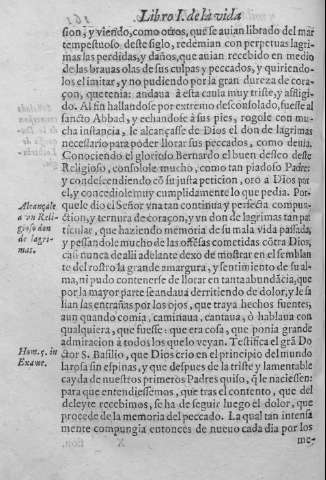 Libro I. de la vida
sion, y viendo, como otros, que se auian librado del mar
tempestuoso deste siglo, redemian con perpetuas lagri-
mas las perdidas, y daños, que auian recebido en medio
de las brauas olas de sus culpas y peccados, y quiriendo-
los imitar, y no pudiendo por la gran dureza de cora-
çon, que tenia: andaua à esta causa muy triste, y affligi-
do. Al fin hallandose por extremo desconsolado, fuesse al
sancto Abbad, y echandose à sus pies, rogole con mu-
cha instancia, le alcançasse de Dios el don de lagrimas
necessario para poder llorar sus peccados, como deuia.
Conociendo el glorioso Bernardo el buen desseo deste
Religioso, consolole mucho, como tan piadoso Padre,
y condescendiendo cõ su justa peticion, orò à Dios por
el, y concediole muy cumplidamente lo que pedia. Por-
Alcançale
a vn Reli-
gioso don
de lagri-
mas.
quele dio el Señor vna tan continua y perfecta compun-
ction, y ternura de coraçon, y vn don de lagrimas tan par
ticular, que haziendo memoria de su mala vida passada,
y pesandole mucho de las offensas cometidas cõtra Dios,
casi nunca de alli adelante dexo de mostrar en el semblan
te del rostro la grande amargura, y sentimiento de su al-
ma, ni pudo contenerse de llorar en tanta abundãcia, que
por la mayor parte se andaua derritiendo de dolor, y le sa
lian las entrañas por los ojos, que traya hechos fuentes,
aun quando comia, caminaua, cantaua, ò hablaua con
qualquiera, que fuesse: que era cosa, que ponia grande
admiracion à todos los que lo veyan. Testifica el grã Do
Hom. 5. in
Exame.
ctor S. Basilio, que Dios crio en el principio del mundo
la rosa sin espinas, y que despues de la triste y lamentable
cayda de nuestros primeros Padres quiso, q̃ le naciessen:
para que entendiessemos, que tras el contento, que del
deleyte recebimos, se ha de seguir luego el dolor, que
procede de la memoria del peccado. La qual tan intensa
mente compungia entonces de nueuo cada dia por los
me-